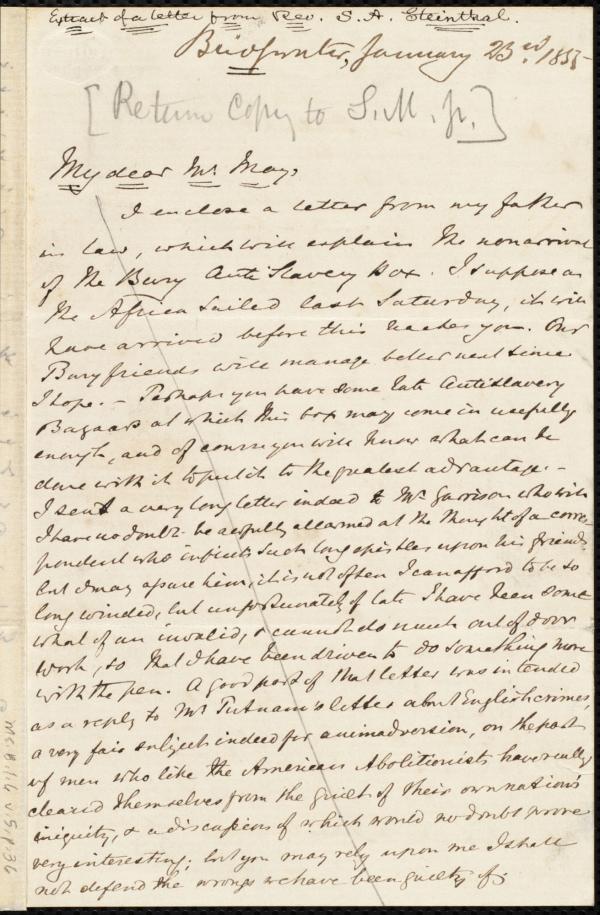 Extract of a letter from Rev. S. A. Steinthal.
Bridgwater, January 23rd. 1855
[Return Copy to S. M. Jr.]
My dear Mr. May,
I enclose a letter from my father
in law, which will explain the nonarrival
of the Bury Anti Slavery Box. I suppose as
the Africa sailed last Saturday, it will
have arrived before this reaches you. Our
Bury friends will manage better next time
I hope. – Perhaps you have some late Antislavery
Bazaars at which this box may come in usefully
enough, and of course you will know what can be
done with it to put it to the greatest advantage. –
I sent a very long letter indeed to Mr Garrison who will
I have no doubt be awfully allarmed at the thought of a corres-
pondent who inflicts such long epistles upon his friends
but I may assure him, it is not often I can afford to be so
long winded, but unfortunately of late I have been some
what of an invalid, & cannot do much out of door
work, so that I have been driven to do something more
with the pen. A good part of that letter was intended
as a reply to Mr Putnam's letter about English crimes,
a very fair subject indeed for animadversion, on the part
of men who like the American Abolitionists have really
cleared themselves from the guilt of their own nation's
iniquity, & a discussion of which would no doubt prove
very interesting; but you may rely upon me I shall
not defend the wrongs we have been guilty of;
Ms.B.1.6 v.5, p.36